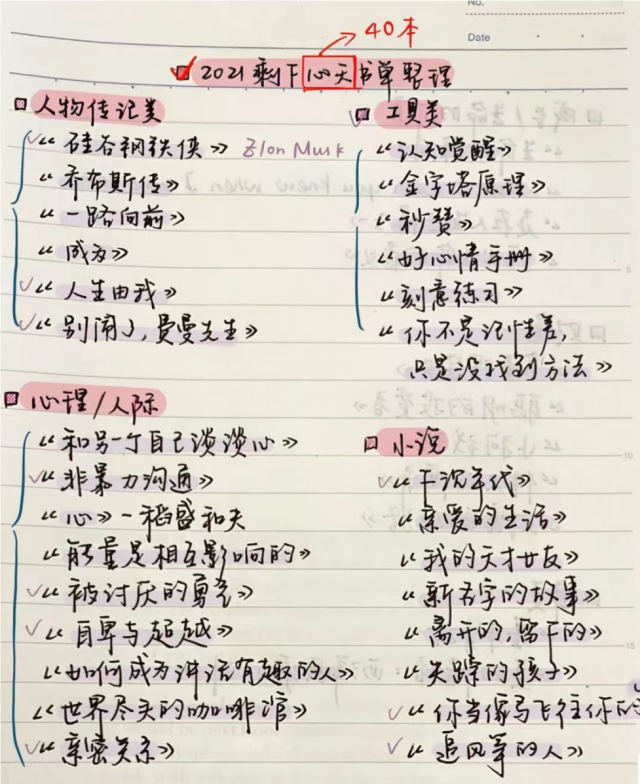 No.
Date
40本
2021剩下100天书单整理
人物传记类
《硅谷钢铁侠》 Elon Musk
《乔布斯传》
《一路向前》
《成为》
《人生由我》
《别闹了,费曼先生》
工具类
《认知觉醒》
《金字塔原理》
《秒赞》
《好心情手册》
《刻意练习》
《你不是记性差,
只是没找到方法》
心理/人际
《和另一个自己谈谈心》
《非暴力沟通》
《心》—稻盛和夫
《能量是相互影响的》
《被讨厌的勇气》
《自卑与超越》
《如何成为讲话有趣的人》
《世界尽头的咖啡馆》
《亲密关系》
小说
《下沉年代》
《亲爱的生活》
《我的天才女友》
《新名字的故事》
《离开的,留下的》
《失踪的孩子》
《你当像鸟飞往你的
《追风筝的人》